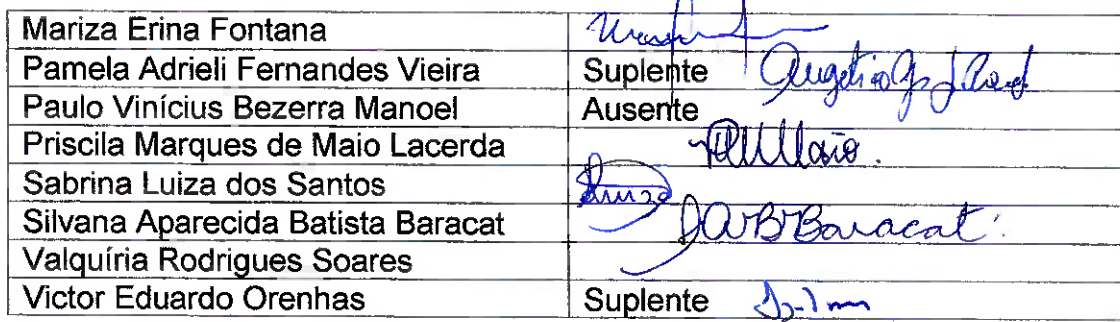 Mariza Erina Fontana
Pamela Adrieli Fernandes Vieira Suplente
Paulo Vinícius Bezerra Manoel Ausente
Priscila Marques de Maio Lacerda
Sabrina Luiza dos Santos
Silvana Aparecida Batista Baracat Baracat
Valquíria Rodrigues Soares
Victor Eduardo Orenhas Suplente